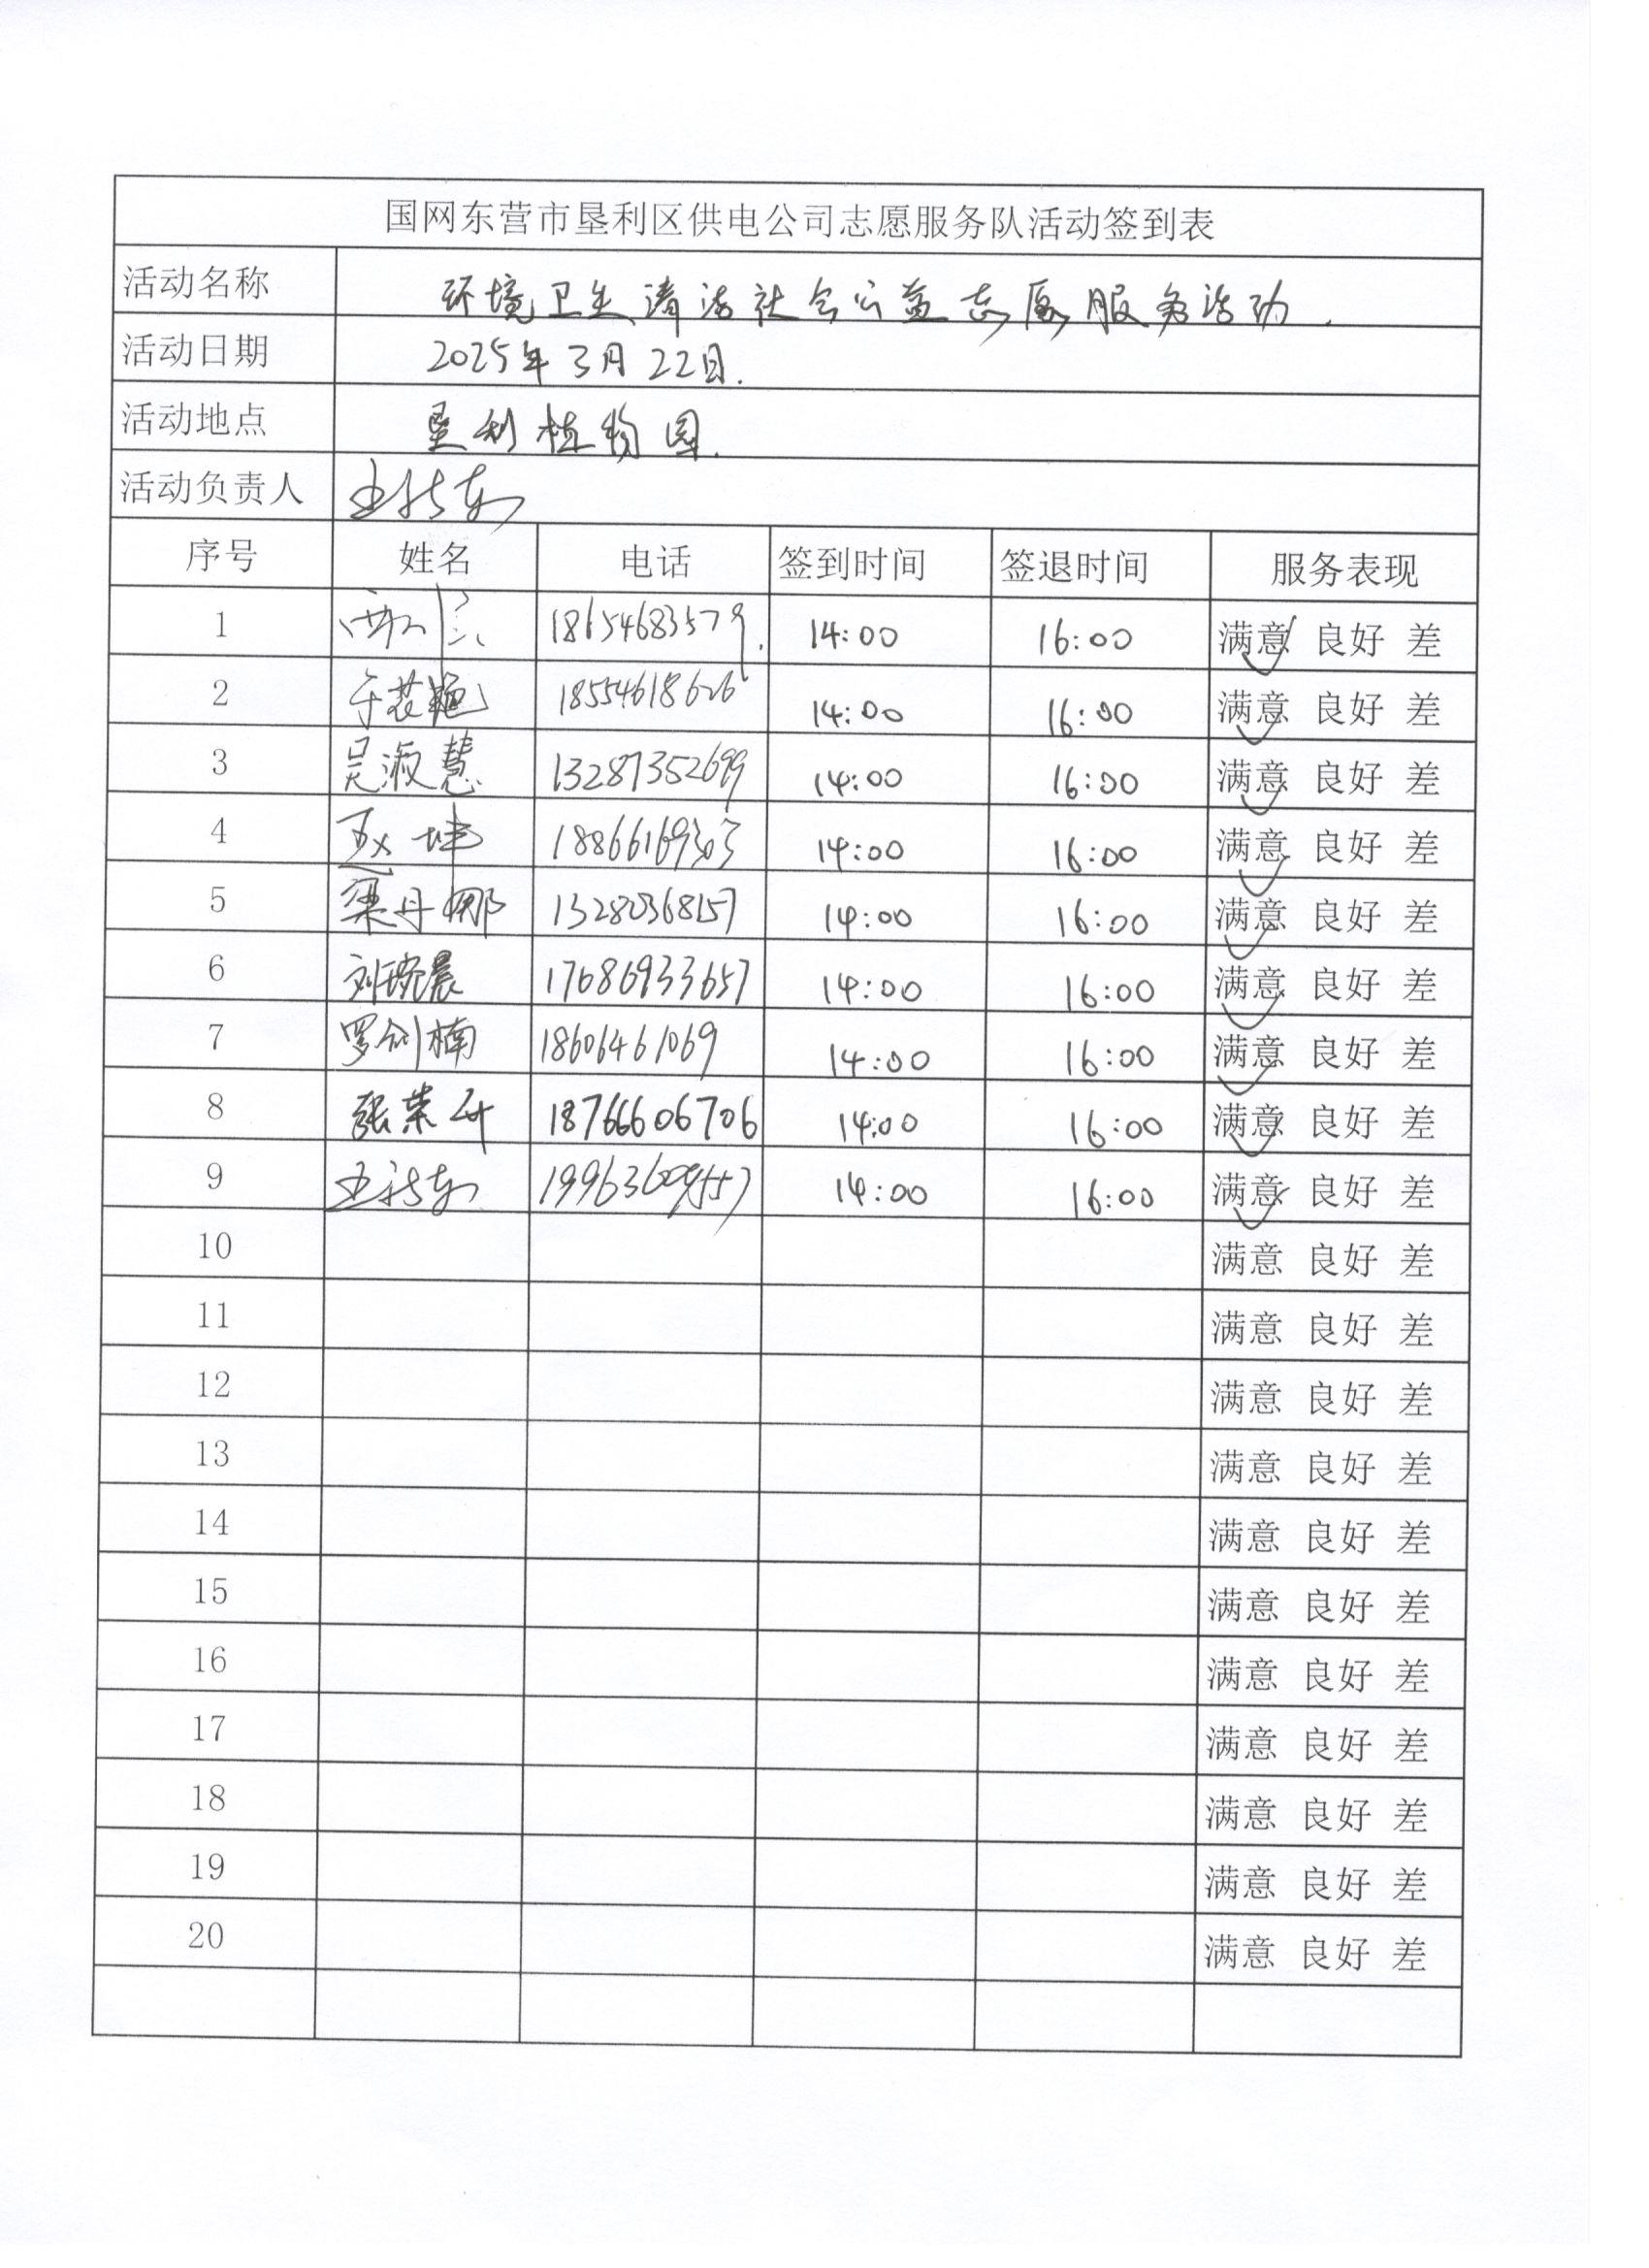 国网东营市垦利区供电公司志愿服务队活动签到表
活动名称 环境卫生清洁社会公益志愿服务活动.
活动日期 2025年3月22日.
活动地点 垦利植物园.
活动负责人
序号 姓名 电话 签到时间 签退时间 服务表现
1 18654683579. 14:00 16:00 满意 良好 差
2 18554618626 14:00 16:00 满意 良好 差
3 吴淑慧 13287352699 14:00 16:00 满意 良好 差
4 赵坤 14:00 16:00 满意 良好 差
5 梁丹娜 14:00 16:00 满意 良好 差
6 刘琬晨 17686933657 14:00 16:00 满意 良好 差
7 罗剑楠 18606461069 14:00 16:00 满意 良好 差
8 张荣升 18766606706 14:00 16:00 满意 良好 差
9 14:00 16:00 满意 良好 差
10 满意 良好 差
11 满意 良好 差
12 满意 良好 差
13 满意 良好 差
14 满意 良好 差
15 满意 良好 差
16 满意 良好 差
17 满意 良好 差
18 满意 良好 差
19 满意 良好 差
20 满意 良好 差